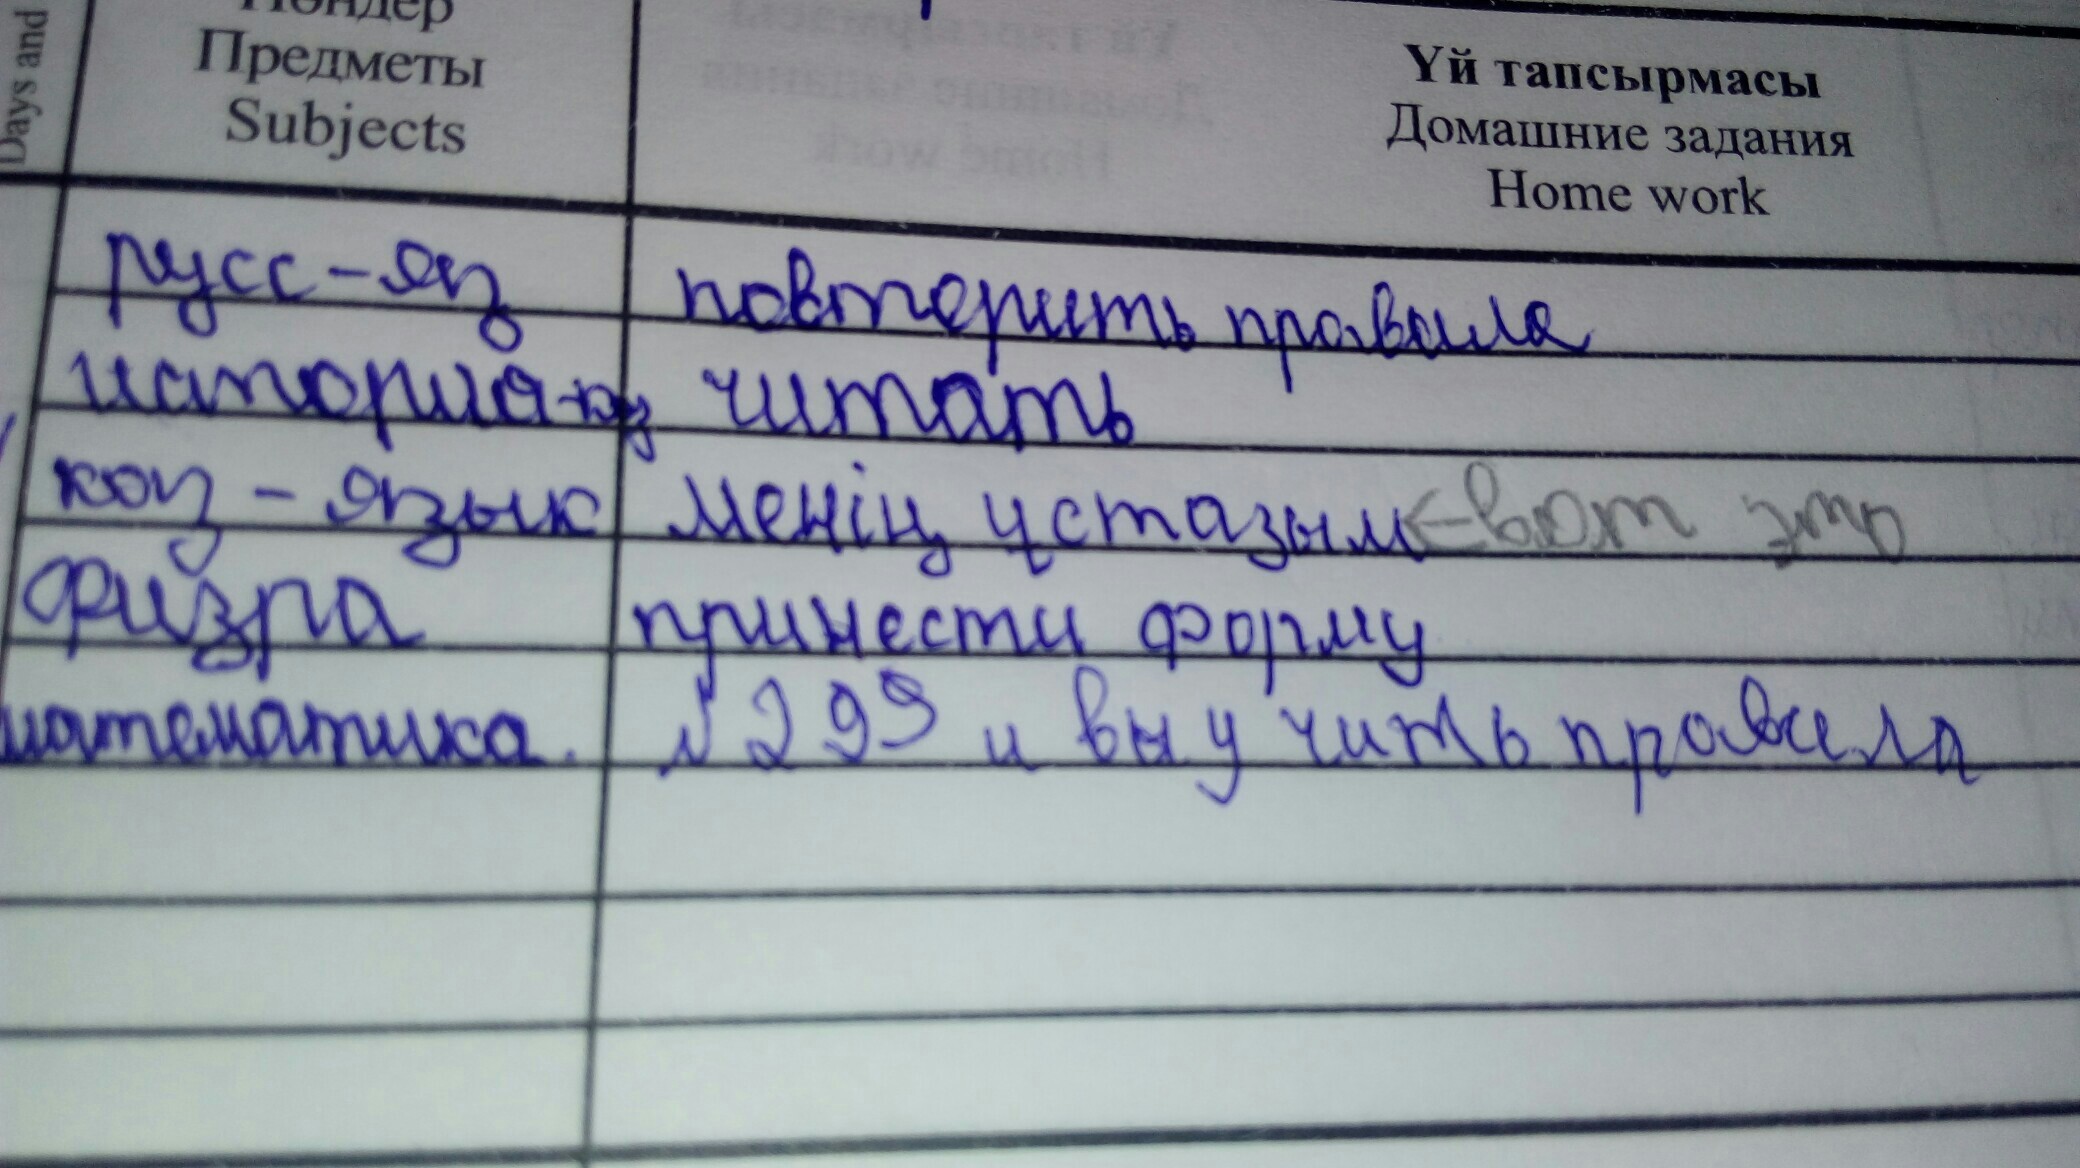 Days and
Пәндер
Предметы
Subjects
Үй тапсырмасы
Домашние задания
Home work
русс-яз повтерить правила
история-кз читать
каз-язык менің ұстазым <-вот это
физра принести форму
математика. №299 и выучить правила